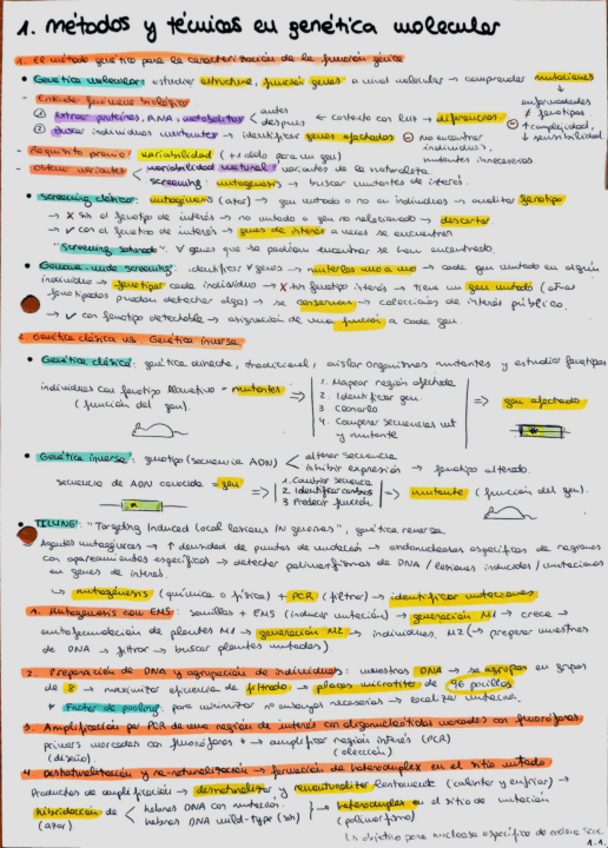 1. métodos y técnicas en genética molecular
1. El método genético para la caracterización de la función génica
• Genética molecular: estudiar estructura, función genes a nivel molecular → comprender mutaciones
- Entender fenómeno biológico
enfermedades
① Extraer proteínas, RNA, metabolitos < antes después ← contexto con luz → diferencias
≠ fenotipos
② Buscar individuos mutantes → identificar genes afectados ⊖ no encontrar individuos, mutantes innecesarios
⊖ ↑ complejidad, ↓ sensibilidad
- Requisito previo: variabilidad (+1 alelo para un gen)
- Obtener variantes < variabilidad natural: variantes de la naturaleza.
screening: mutagénesis → buscar mutantes de interés.
• Screening clásico: mutagénesis (azar) → gen mutado o no en individuos → analizar fenotipo
→ X sin el fenotipo de interés → no mutado o gen no relacionado → descartar.
→ ✓ con el fenotipo de interés → genes de interés a veces se encuentran
"Screening saturado": ∀ genes que se podían encontrar se han encontrado.
• Genome-wide screening: identificar ∀ genes → mutarlos uno a uno → cada gen mutado en algún
individuo → fenotipar cada individuo → X sin fenotipo interés → tiene un gen mutado (otros
fenotipados puedan detectar algo) → se conservan → colecciones de interés público.
→ ✓ con fenotipo detectable → asignación de una función a cada gen.
2. Genética clásica vs. Genética inversa
• Genética clásica: genética directa, tradicional, aislar organismos mutantes y estudiar fenotipos
individuos con fenotipo alternativo = mutantes
(función del gen).
⇒
1. Mapear región afectada
2. Identificar gen
3. Clonarlo
4. Comparar secuencias wt
y mutante
⇒ gen afectado
• Genética inversa: genotipo (secuencia ADN) < alterar secuencia
inhibir expresión → fenotipo alterado.
secuencia de ADN conocida = gen
⇒
1. Cambiar secuencia
2. Identificar cambios
3. Predecir función
⇒ mutante (función del gen).
• TILLING: "Targeting Induced Local Lesions IN genomes", genética reversa.
Agentes mutagénicos → ↑ densidad de puntos de mutación → endonucleasas específicas de regiones
con apareamientos específicos → detectar polimorfismos de DNA / lesiones inducidas / mutaciones
en genes de interés.
↳ mutagénesis (química o física) + PCR (filtrar) → identificar mutaciones
1. Mutagénesis con EMS: semillas + EMS (inducir mutación) → generación M1 → crece →
autofecundación de plantas M1 → generación M2 → individuos M2 (→ preparar muestras
de DNA → filtrar → buscar plantas mutadas).
2. Preparación de DNA y agrupación de individuos: muestras DNA → se agrupan en grupos
de 8 → maximizar eficiencia de filtrado → placas microtiter de 96 pocillos
* Factor de pooling: para minimizar nº ensayos necesarios → localizar mutación.
3. Amplificación por PCR de una región de interés con oligonucleótidos marcados con fluoróforos
primers marcados con fluoróforos * → amplificar región interés (PCR)
(diseño).
(elección)
4. Deshaturalización y re-naturalización → formación de heterodúplex en el sitio mutado
Productos de amplificación → desnaturalizar y renaturalizar lentamente (calentar y enfriar) →
hibridación de < hebras DNA con mutación.
(azar)
hebras DNA wild-type (sin)
→ heterodúplex en el sitio de mutación
(polimorfismo)
↳ objetivo para nucleasa específica de cadena sen.
1.1.